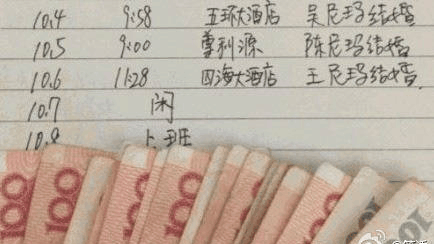 10.4 9:58 五环大酒店 吴尼玛结婚
10.5 9:00 尊利源 陈尼玛结婚
10.6 11:28 四海大酒店 王尼玛结婚.
10.7 闲
10.8 上班
100 100 100 100 100 100